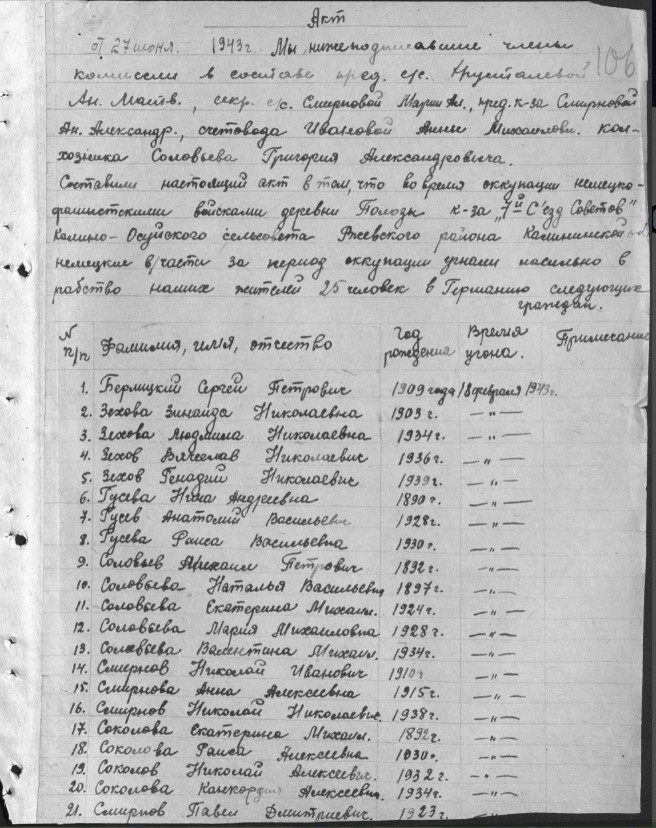 Акт
106
от 27 июня. 1943г. Мы, нижеподписавшие члены
комиссии в составе пред. с/с. Хрусталевой
Ан. Матв., секр. с/с. Смирновой Марии Ал., пред. к-за Смирновой
Ан. Александр., счетовода Ивановой Анны Михайлови. кол-
хозника Соловьева Григория Александровича.
Составили настоящий акт в том, что во время оккупации немецко-
фашистскими войсками деревни Полозы к-за "7й С'езд Советов"
Калино-Осуйского сельсовета Ржевского района Калининской
немецкие в/части за период оккупации угнали насильно в
рабство наших жителей 25 человек в Германию следующих
граждан.
N п/п Фамилия, имя, отчество Год рождения Время угона. Примечание
1. Берлицкий Сергей Петрович 1909 года 18 февраля 1943г.
2. Зехова Зинаида Николаевна 1903 г. —"—
3. Зехова Людмила Николаевна 1934г. —"—
4. Зехов Вячеслав Николаевич 1936г. —"—
5. Зехов Генадий Николаевич 1939г. —"—
6. Гусева Нина Андреевна 1890г. —"—
7. Гусев Анатолий Васильевич 1928г. —"—
8. Гусева Раиса Васильевна 1930г. —"—
9. Соловьев Михаил Петрович 1892г. —"—
10. Соловьева Наталья Васильевн 1897г. —"—
11. Соловьева Екатерина Михаил. 1924г. —"—
12. Соловьева Мария Михаиловна 1928г. —"—
13. Соловьева Валентина Михаил. 1934г. —"—
14. Смирнов Николай Иванович 1910г —"—
15. Смирнова Анна Алексеевна 1915г. —"—
16. Смирнов Николай Николаевич. 1938г. —"—
17. Соколова Екатерина Михаил. 1892г. —"—
18. Соколова Раиса Алексеевна 1930. —"—
19. Соколов Николай Алексеевич. 1932г. —"—
20. Соколова Канкордия Алексеевн. 1934г. —"—
21. Смирнов Павел Дмитриевич. 1923г. —"—